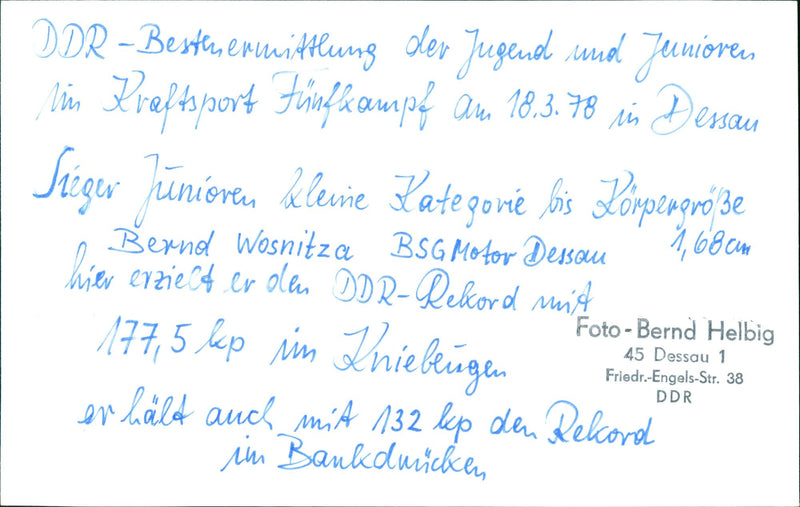 DDR-Bestenermittlung der Jugend und Junioren
im Kraftsport Fünfkampf am 18.3.78 in Dessau
Sieger Junioren kleine Kategorie bis Körpergröße
1,68cm
Bernd Wosnitza BSG Motor Dessau
hier erzielt er den DDR-Rekord mit
177,5 kp im Kniebeugen
er hält auch mit 132 kp den Rekord
im Bankdrücken
Foto-Bernd Helbig
45 Dessau 1
Friedr.-Engels-Str. 38
DDR